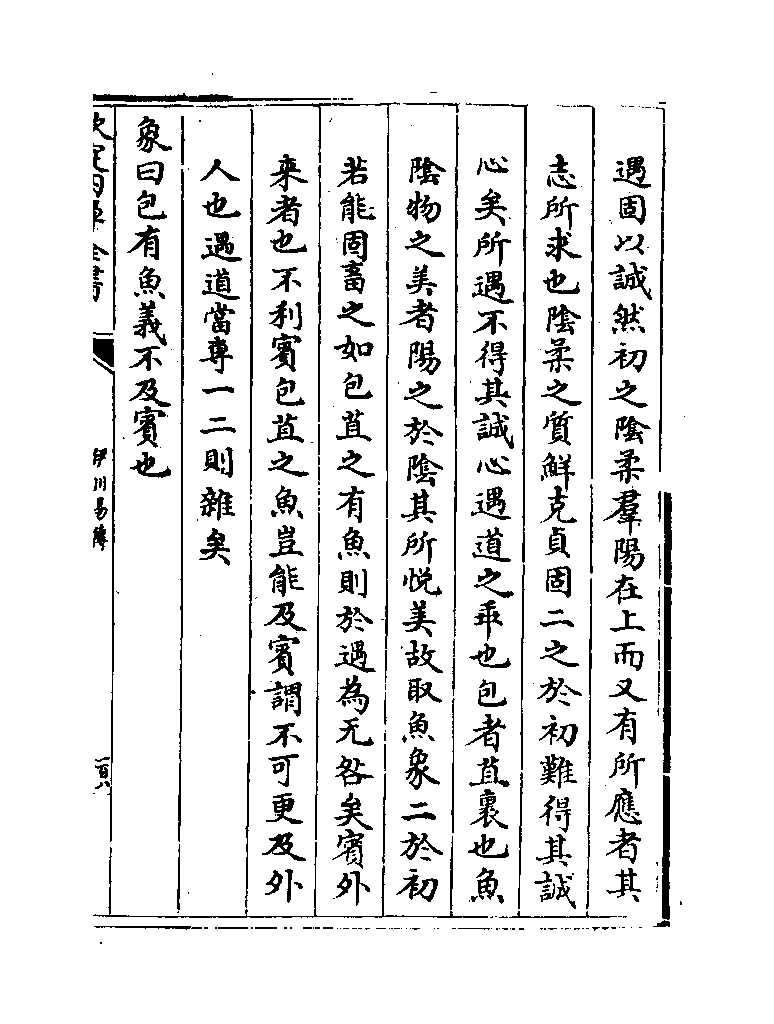 遇固以誠然初之陰柔羣陽在上而又有所應者其
志所求也陰柔之質鮮克貞固二之於初難得其誠
心矣所遇不得其誠心遇道之乖也包者苴裹也魚
陰物之美者陽之於陰其所悦美故取魚象二於初
若能固畜之如包苴之有魚則於遇為无咎矣賓外
來者也不利賓包苴之魚豈能及賓謂不可更及外
人也遇道當專一二則雜矣
象曰包有魚義不及賓也
欽定四庫全書
伊川易傳